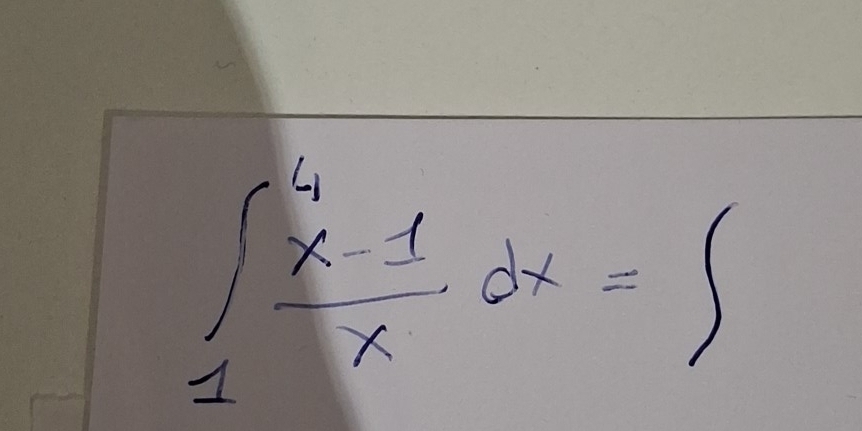 ∫₁⁴ (x-1)/x dx = ∫